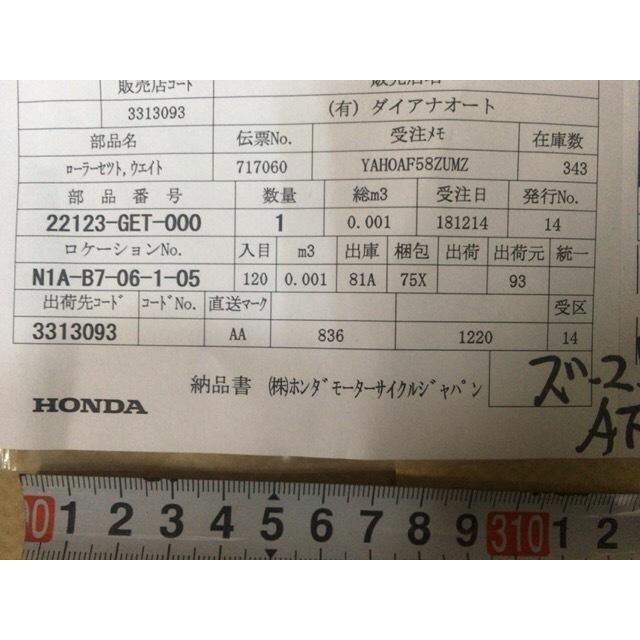 販売店コート 販売店名
3313093 (有) ダイアナオート
部品名 伝票No. 受注メモ 在庫数
ローラーセツト,ウエイト 717060 YAHOAF58ZUMZ 343
部品番号 数量 総m3 受注日 発行No.
22123-GET-000 1 0.001 181214 14
ロケーションNo. 入目 m3 出庫 梱包 出荷 出荷元 統一
N1A-B7-06-1-05 120 0.001 81A 75X 93
出荷先コード コードNo. 直送マーク 受区
3313093 AA 836 1220 14
納品書 (株)ホンダモーターサイクルジャパン
HONDA
ズ-2
AF
0 1 2 3 4 5 6 7 8 9 310 1 2